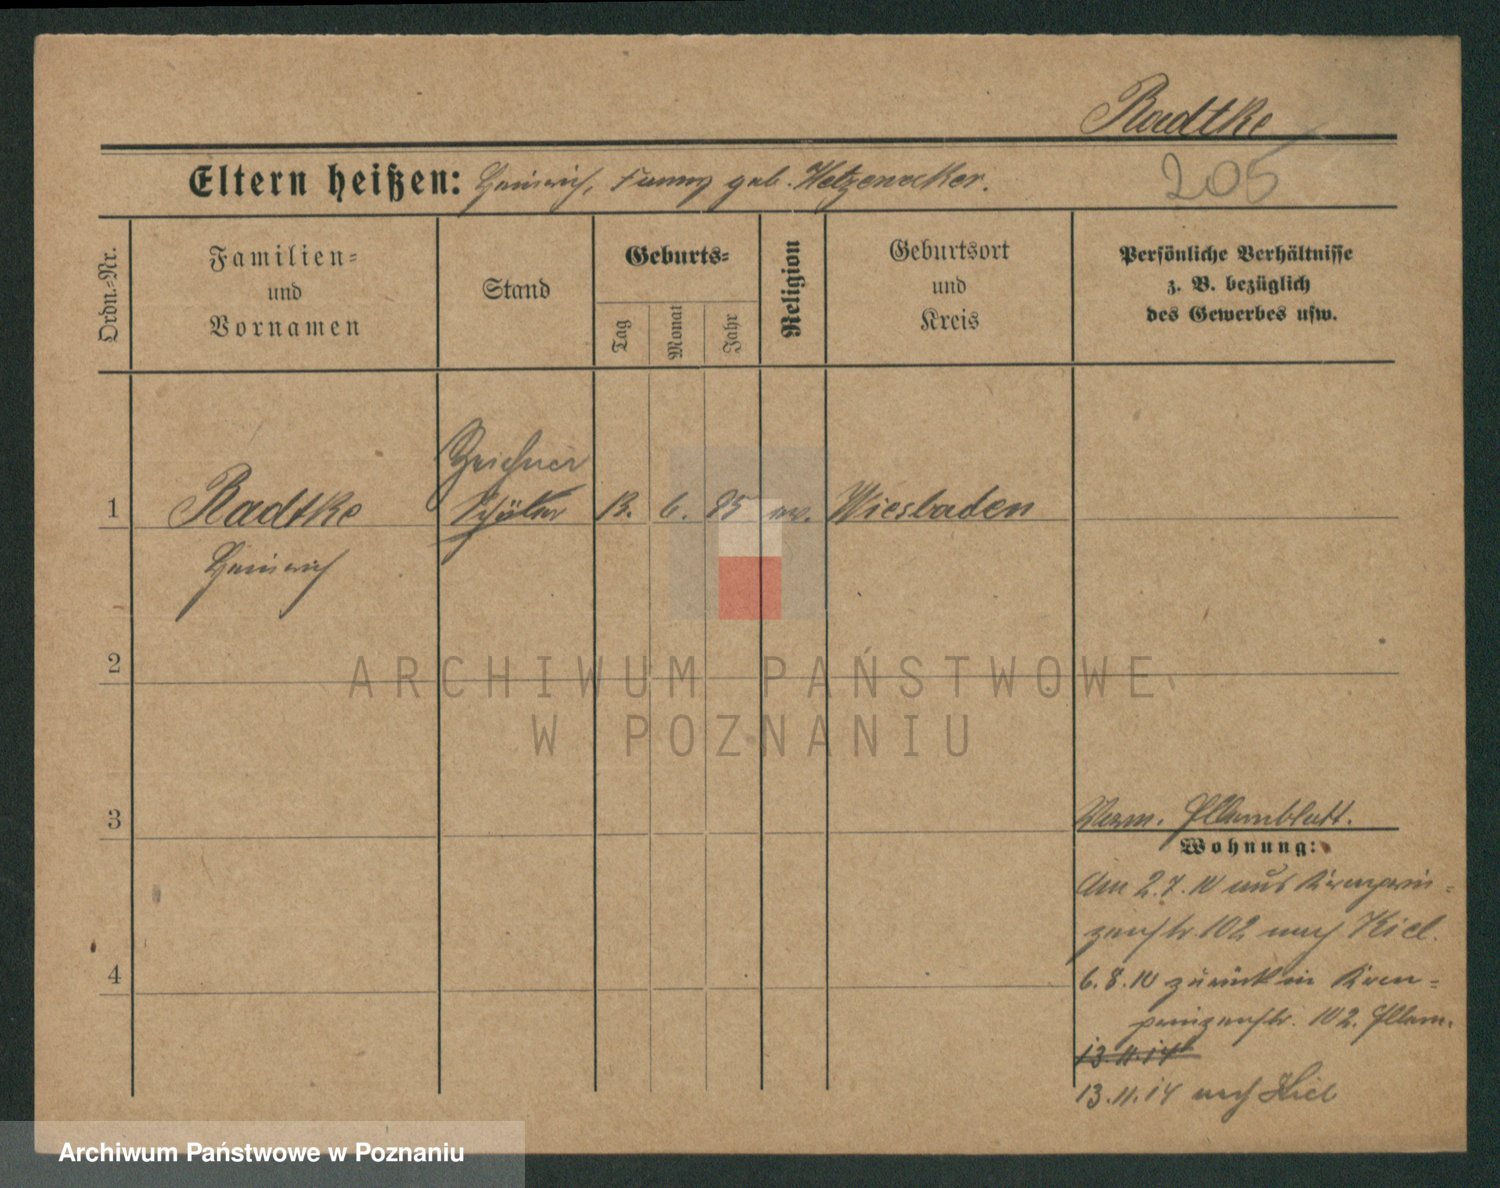 Radtke
Eltern heißen: Heinrich, Fanny geb. Hetzenecker.
205
Ordn.-Nr.
Familien-
und
Vornamen
Stand
Geburts-
Tag
Monat
Jahr
Religion
Geburtsort
und
Kreis
Persönliche Verhältnisse
z. B. bezüglich
des Gewerbes usw.
Zeichner
1 Radtke Schüler 13. 6. 95 ev. Wiesbaden
Heinrich
2
ARCHIWUM PAŃSTWOWE
W POZNANIU
3
Verm. Elternblatt.
Wohnung:
Am 2.7.10 aus Kronprin-
zenstr. 102 nach Kiel.
4
6.8.10 zurück in Kron-
prinzenstr. 102. Eltern.
13.11.14
13.11.14 nach Kiel
Archiwum Państwowe w Poznaniu